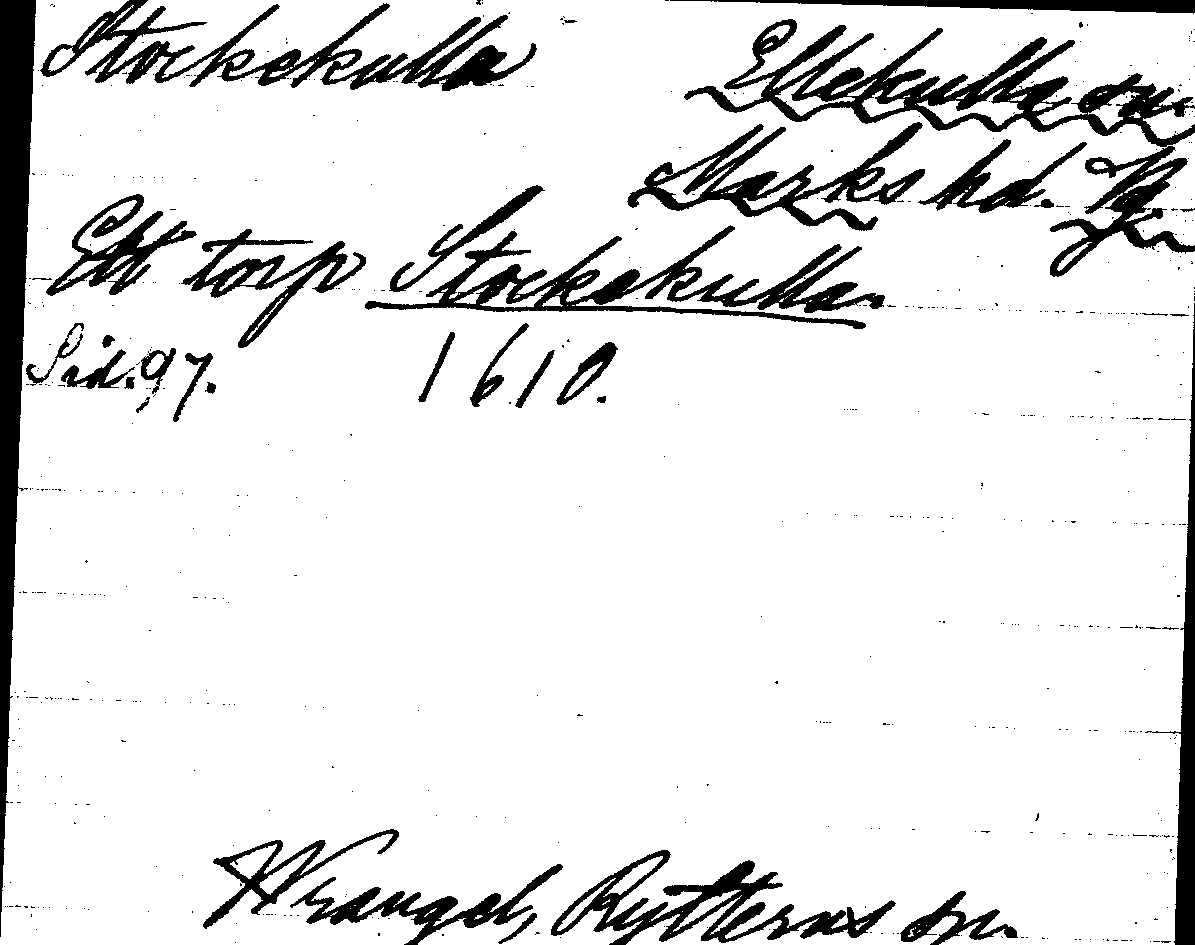 Stockekulla
Ellekulla sn.
Marks hd. Vg.
Ett torp Stockakulla.
Sid. 97. 1610.
Wrangel, Rytterns sn.